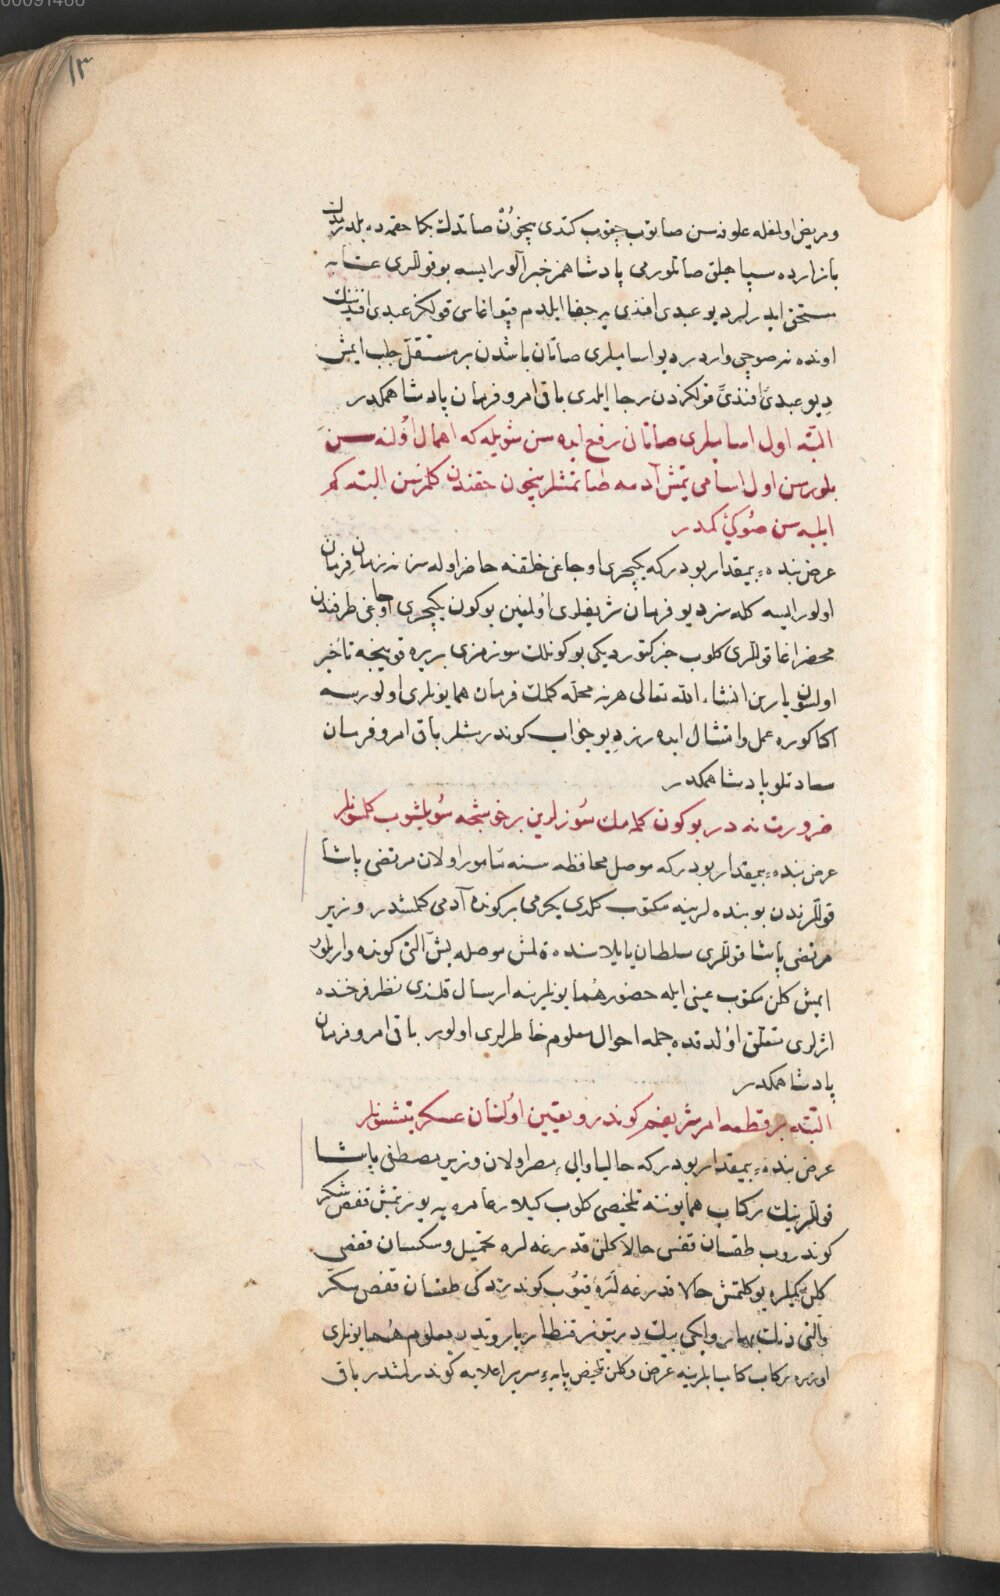 00091486
١٣
و مریض اولمغله علوفه سن صاتوب چقوب کتدی یچخون صاتدك بکا حقمده بلدیردن
بازارده سپاهیلق صاتلورمی پادشاهمز خبر آلور ایسه بو قوللری عتابه
مستحق ایدرلر دیو عبدی افندی یه جفا ایلدم قپو اغاسی قولکز عبدی افندینك
اونده نه صوچی واردر دیو اسامیلری صاتان باشدن بر مستقل جلب ایمش
دیو عبدی افندی قولکزدن رجا ایلدی باقی امر و فرمان پادشاهمکدر
البته اول اسامیلری صاتان رفع ایده سن شویله که اهمال اولنه سن
بلورسن اول اسامی یتمش آدمه صاتمشلر یچون حقندن کلمزسن البته کم
ایلیه سن صوکی کمدر
عرض بنده بیمقدار بودرکه یکیچری اوجاغی خلقنه حاضر اوله سز نه زمان فرمان
اولور ایسه کله سز دیو فرمان شریفلری اولمغین بوکون یکیچری اوجاغی طرفندن
محضر اغا قوللری کلوب جز کتوردیکی بوکونلك سوزمزی بریره قوینجه تأخیر
اولسون یارین انشاء الله تعالی هر نه محله کلمك فرمان همایونلری اولورسه
اکا کوره عمل و امتثال ایده رز دیو جواب کوندرمشلر باقی امر و فرمان
سعادتلو پادشاهمکدر
ضرورت نه در بوکون کلمه مك سوزلرین برخوشجه سویلشوب کلسونلر
عرض بنده بیمقدار بودرکه موصل محافظه سنه مأمور اولان مرتضی پاشا
قوللرندن بو بنده لرینه مکتوب کلدی یکرمی بر کونده آدمی کلمشدر وزیر
مرتضی پاشا قوللری سلطان یایلاسنده قلمش موصله بش التی کونده واریلور
ایمش کلن مکتوب عینی ایله حضور همایونلرینه ارسال قلندی نظر فرخنده
اثرلری متعلق اولدقده جمله احوال معلوم خاطرلری اولور باقی امر و فرمان
پادشاهمکدر
البته بر قطعه امر شریفم کوندر و تعیین اولنان عسکر یتشسونلر
عرض بنده بیمقدار بودرکه حالیا والی مصر اولان وزیر مصطفی پاشا
قوللرینك رکاب همایوننه تلخیصی کلوب کیلار عامره یه یوز یتمش قفص شکر
کوندروب طقسان قفس حالا کلن قدرغه لره تحمیل و سکسان قفصی
کلن کمیلره یوکلتمش حالا قدرغه لره قیوب کوندردکی طقسان قفص سکر
و التی دنك بهار و ایکی بیك درتیوز قنطار باروتدر معلوم همایونلری
اوزره رکاب کامیابلرینه عرض و کلن تلخیص پایه سریر اعلایه کوندرلمشدر باقی